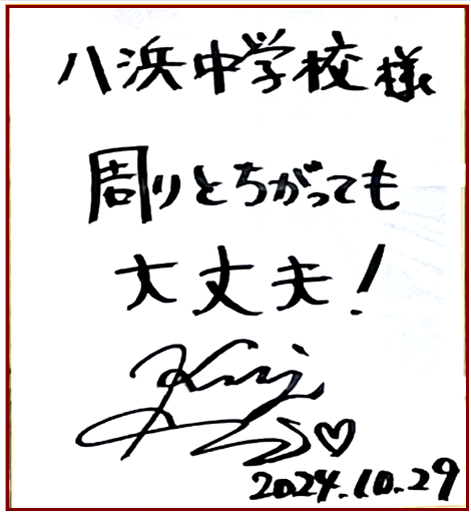 八浜中学校様
周りとちがっても
大丈夫!
2024.10.29